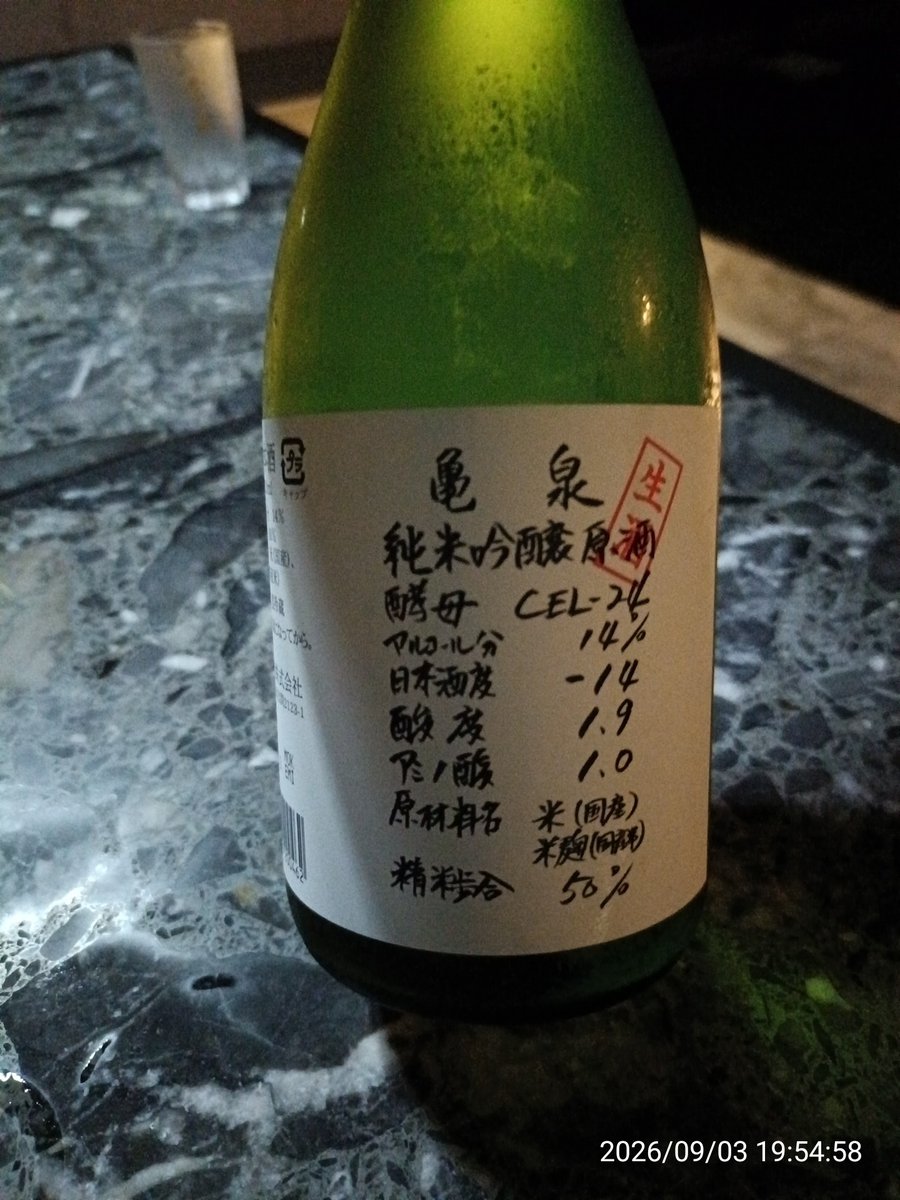 亀 泉
生酒
純米吟醸原酒
酵母 CEL-24
アルコール分 14%
日本酒度 -14
酸度 1.9
アミノ酸 1.0
原材料名 米(国産)
米麹(国産)
精米歩合 50%
酒
キャップ
14%
になってから。
式会社
2026/09/03 19:54:58